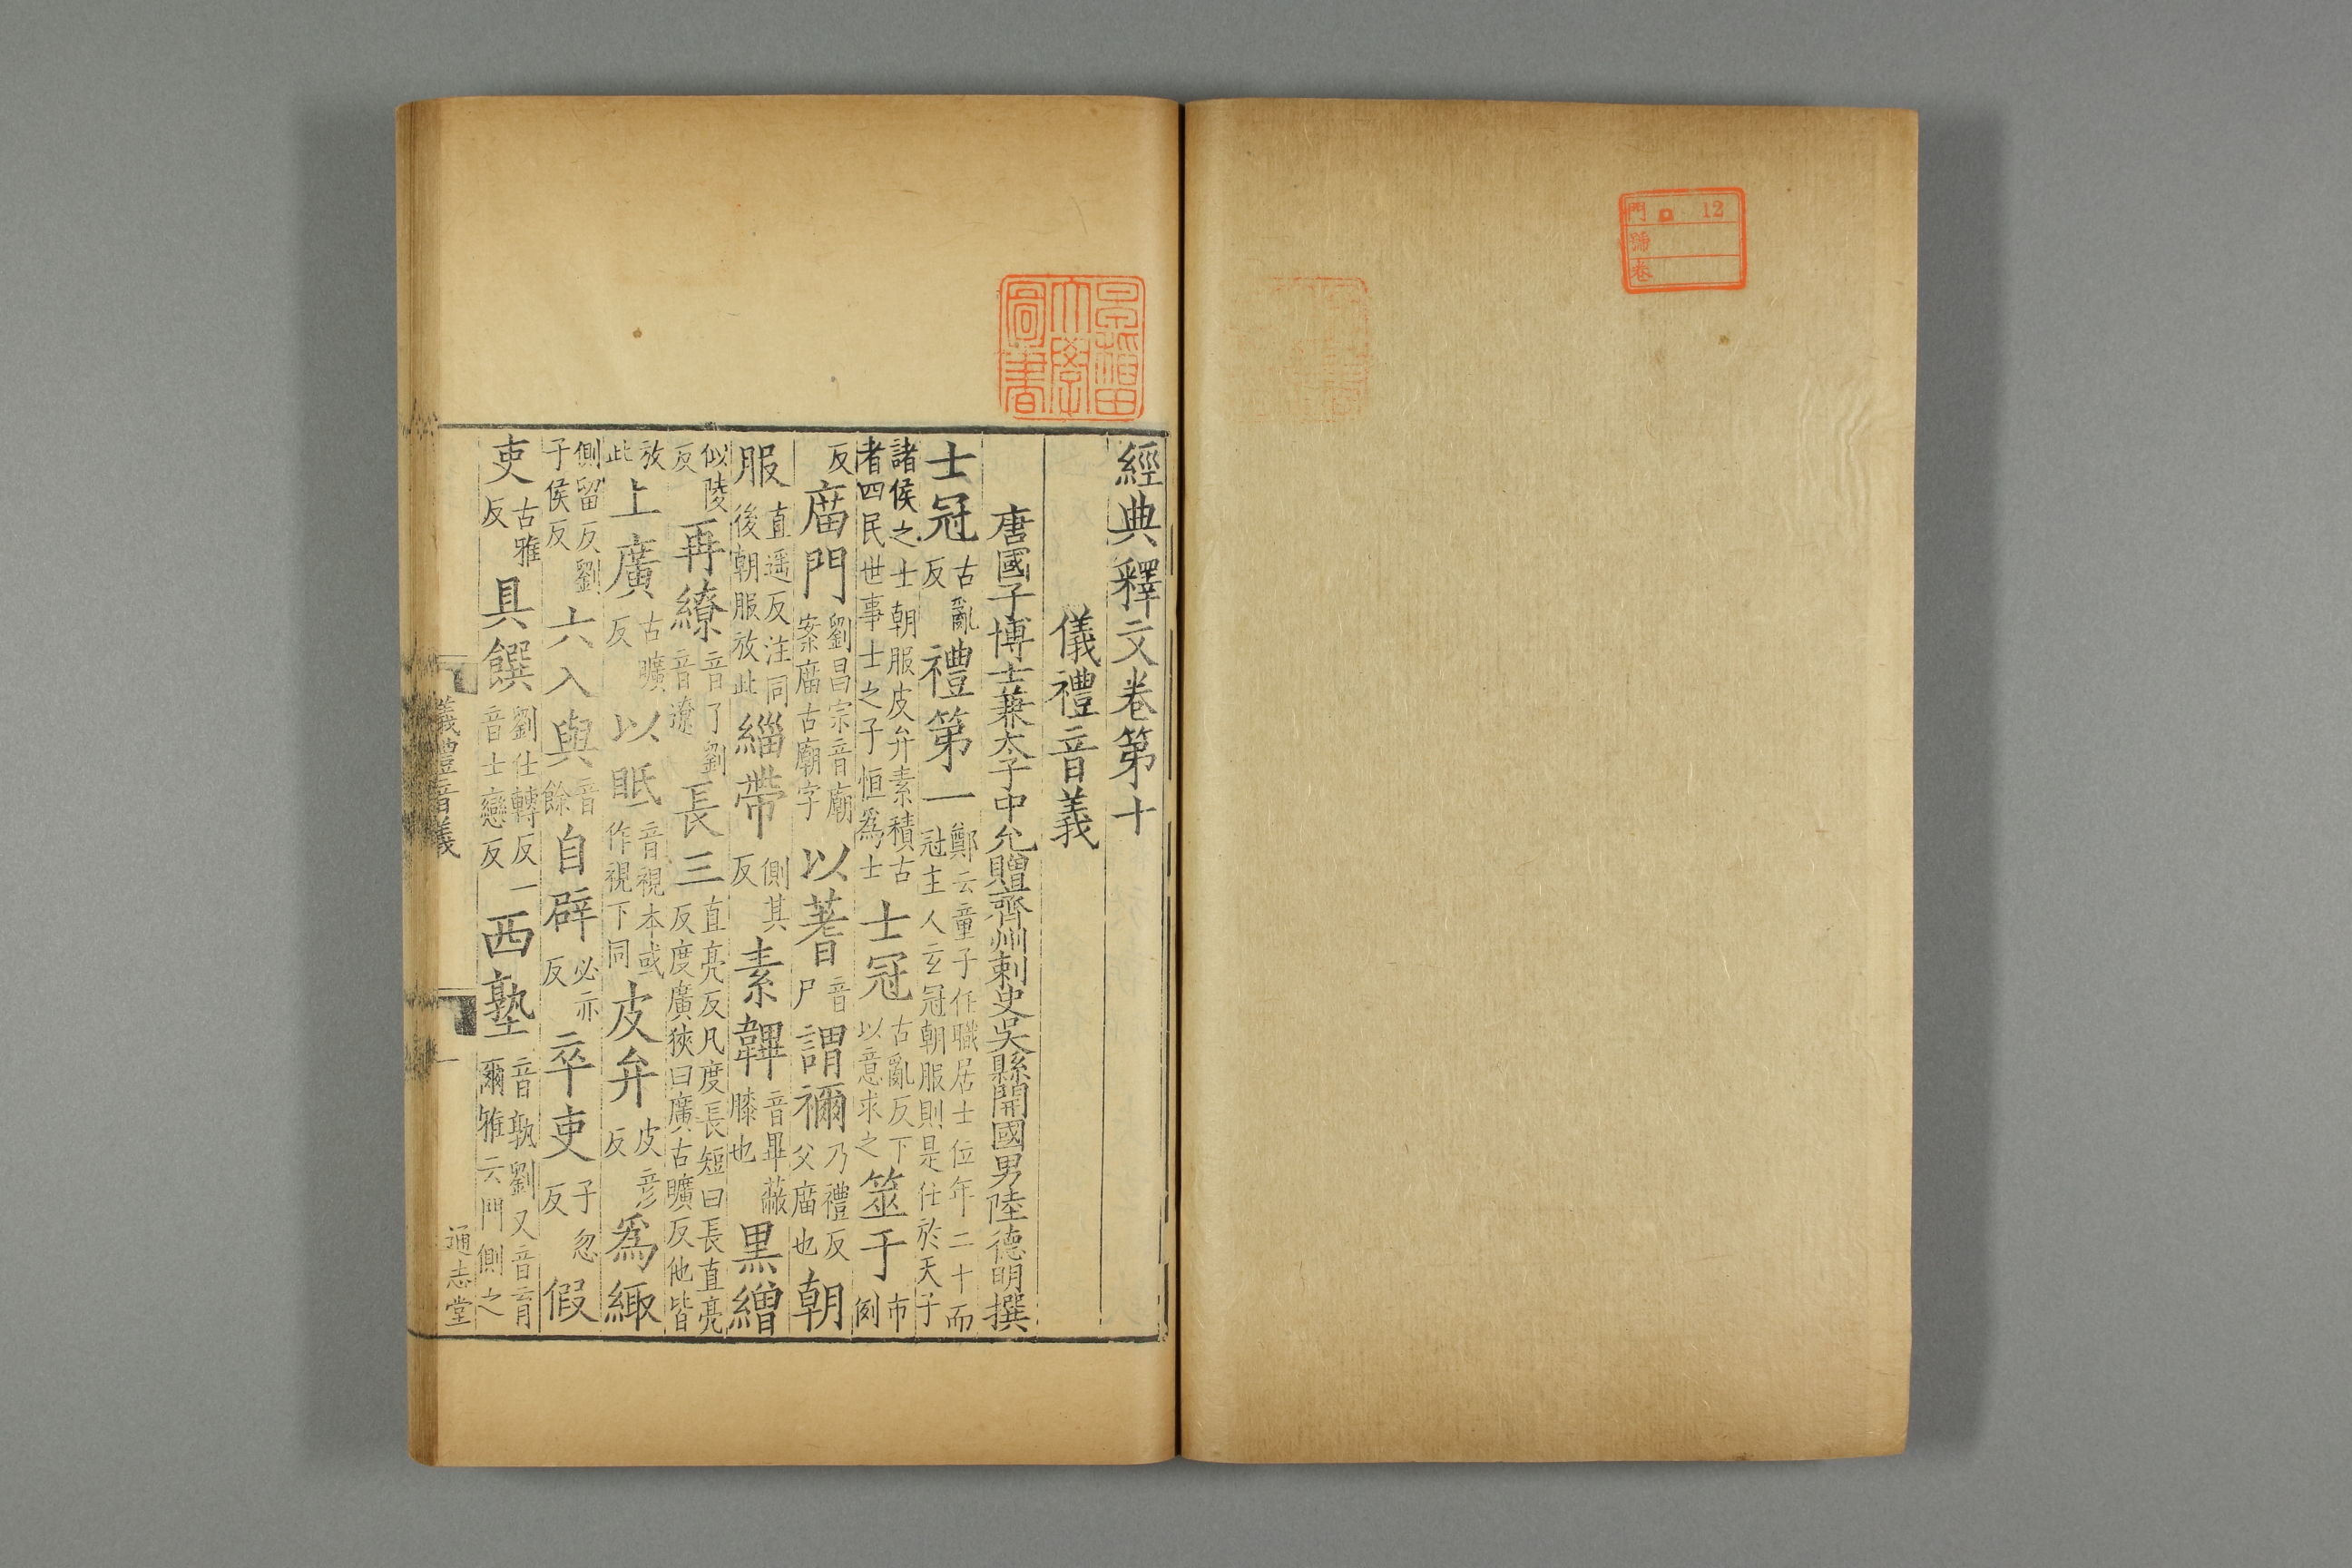 門 ロ 12
號
卷
經典釋文卷第十
儀禮音義
唐國子博士兼太子中允贈齊州刺史吳縣開國男陸德明撰
士冠古亂反禮第一鄭云童子任職居士位年二十而冠主人玄冠朝服則是仕於天子
諸侯之士朝服皮弁素積古者四民世事士之子恒爲士士冠古亂反下以意求之筮于市例
反庿門劉昌宗音廟案庿古廟字以蓍音尸謂禰乃禮反父庿也朝
服直遥反注同後朝服放此緇帶側其反素韠音畢蔽膝也黑繒
似陵反再繚音了劉音遼長三直亮反凡度長短曰長直亮反度廣狹曰廣古曠反他皆
放此上廣古曠反以眂音視本或作視下同皮弁皮彦反爲緅
側留反劉子侯反六入與音餘自辟必亦反卒吏子忽反假
吏古雅反具饌劉仕轉反一音士戀反西塾音孰劉又音育爾雅云門側之
儀禮音義
一
通志堂